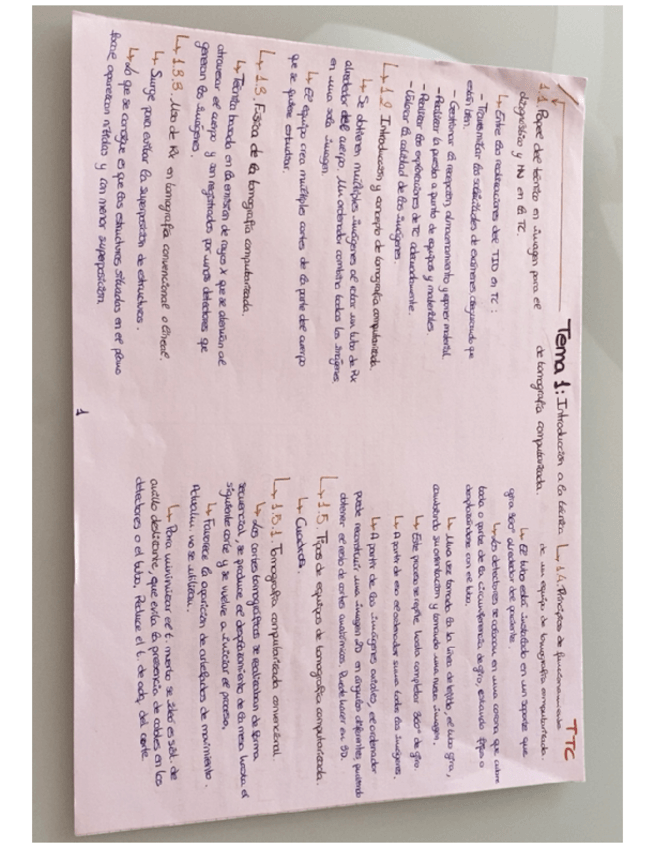 TTC
Tema 1: Introducción a la técnica
de tomografía computarizada.
1.1. Papel del técnico en imagen para el
diagnóstico y MN en la TC.
↳ Entre las realizaciones del TID en TC:
- Transmitir las solicitudes de exámenes asegurando que
están bien.
- Gestionar la recepción, almacenamiento y reponer material.
- Realizar la puesta a punto de equipos y materiales.
- Realizar las exploraciones de TC adecuadamente.
- Valorar la calidad de las imágenes.
↳ 1.2. Introducción y concepto de tomografía computarizada.
↳ Se obtienen múltiples imágenes al rotar un tubo de Rx
alrededor del cuerpo. Un ordenador combina todas las imágenes
en una sola imagen.
↳ El equipo crea múltiples cortes de la parte del cuerpo
que se quiere estudiar.
↳ 1.3. Física de la tomografía computarizada.
↳ Técnica basada en la emisión de rayos X que se atenúan al
atravesar el cuerpo y son registrados por unos detectores que
generan las imágenes.
↳ 1.3.3. Uso de Rx en tomografía convencional o lineal.
↳ Surge para evitar la superposición de estructuras.
↳ Lo que se consigue es que las estructuras situadas en el plano
focal aparezcan nítidas y con menor superposición.
1
↳ 1.4. Principios de funcionamiento
de un equipo de tomografía computarizada.
↳ El tubo está instalado en un soporte que
gira 360º alrededor del paciente.
↳ Los detectores se colocan en una corona que cubre
toda o parte de la circunferencia de giro, estando fija o
desplazándose con el tubo.
↳ Una vez tomada la línea de tejido, el tubo gira,
cambiando su orientación y tomando una nueva imagen.
↳ Este proceso se repite hasta completar 360º de giro.
↳ A partir de eso el ordenador suma todas las imágenes.
↳ A partir de las imágenes axiales, el ordenador
puede reconstruir una imagen 2D en ángulos diferentes, pudiendo
obtener el resto de cortes anatómicos. Puede hacer en 3D.
↳ 1.5. Tipos de equipos de tomografía computarizada.
↳ Cuaderno.
↳ 1.5.1. Tomografía computarizada convencional.
↳ Los cortes tomográficos se realizaban de forma
secuencial, se produce el desplazamiento de la mesa hasta el
siguiente corte y se vuelve a iniciar el proceso.
↳ Favorece la aparición de artefactos de movimiento.
Actualm. no se utilizan.
↳ Para minimizar el t. muerto se
anillo deslizante, que evita la presencia de cables en los
detectores o el tubo. Reduce el t. de adq. del corte.